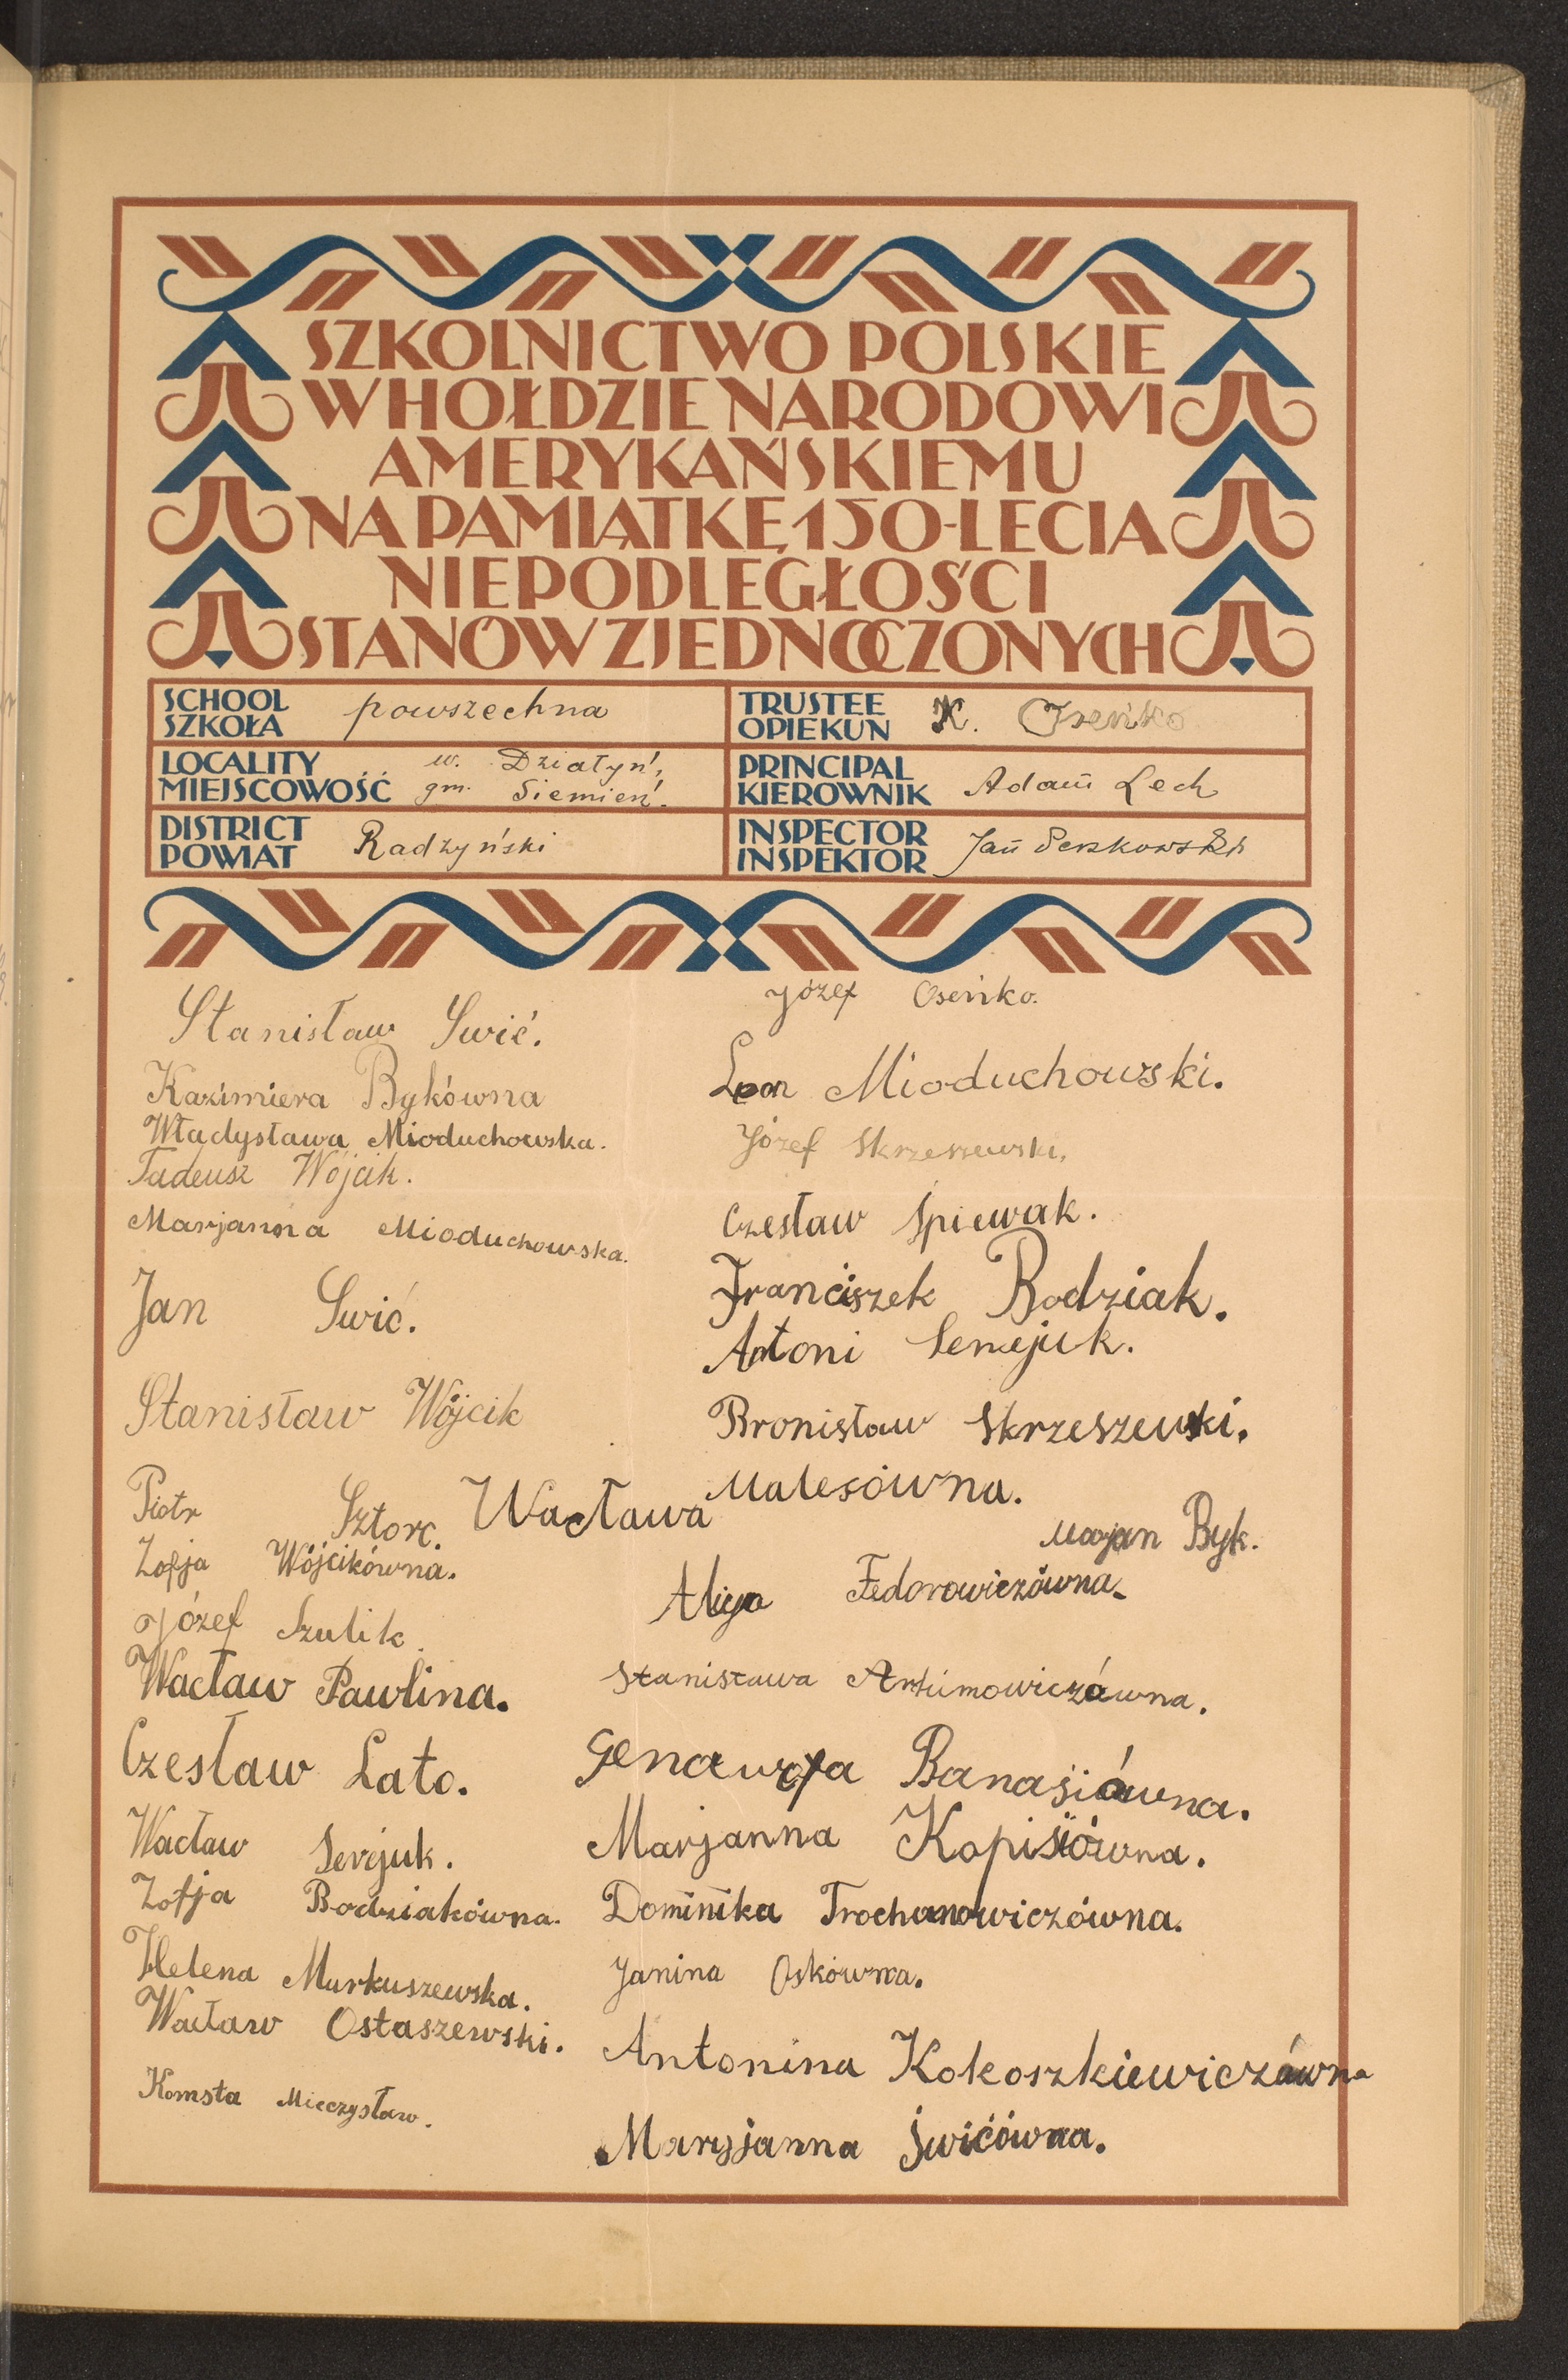 SZKOLNICTWO POLSKIE
W HOŁDZIE NARODOWI
AMERYKAŃSKIEMU
NA PAMIĄTKĘ 150-LECIA
NIEPODLEGŁOŚCI
STANÓW ZJEDNOCZONYCH
SCHOOL
SZKOŁA powszechna
TRUSTEE
OPIEKUN K. Oseńko
LOCALITY
MIEJSCOWOŚĆ w. Działyń,
gm. Siemień.
PRINCIPAL
KIEROWNIK Adam Lech
DISTRICT
POWIAT Radzyński
INSPECTOR
INSPEKTOR Jan
Stanisław Swić.
Kazimiera Bykówna
Władysława Mioduchowska.
Tadeusz Wójcik.
Marjanna Mioduchowska.
Jan Swić.
Stanisław Wójcik
Piotr Sztorc.
Zofja Wójcikówna.
Józef Szulik.
Wacław Pawlina.
Czesław Lato.
Wacław Serejuk.
Zofja Bodziakówna.
Helena Murkuszewska.
Wacław Ostaszewski.
Komsta Mieczysław.
Józef Oseńko.
Leon Mioduchowski.
Józef Skrzeszewski.
Czesław Śpiewak.
Franciszek Bodziak.
Antoni Semejuk.
Bronisław Skrzeszewski.
Wacława Malesówna.
Marjan Byk.
Alicja Fedorowiczówna.
Stanisława Artimowiczówna.
Genawefa Banasiówna.
Marjanna Kopisiówna.
Dominika Trochanowiczówna.
Janina Oskówna.
Antonina Kokoszkiewiczówna
Maryjanna Świćówna.